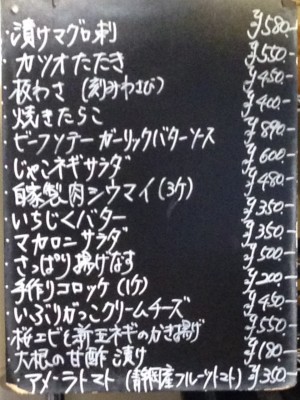 ・漬けマグロ刺 ¥580-
・カツオたたき ¥550-
・板わさ(刻みわさび) ¥450-
・焼きたらこ ¥400-
・ビーフソテーガーリックバターソース ¥890-
・じゃこネギサラダ ¥600-
・自家製肉シウマイ(3ケ) ¥480-
・いちじくバター ¥350-
・マカロニサラダ ¥350-
・さっぱり揚げなす ¥500-
・手作りコロッケ(1ケ) ¥200-
・いぶりがっこクリームチーズ ¥450-
・桜エビと新玉ネギのかき揚げ ¥550-
・大根の甘酢漬け ¥180-
・アメーラトマト(静岡産フルーツトマト) ¥350-